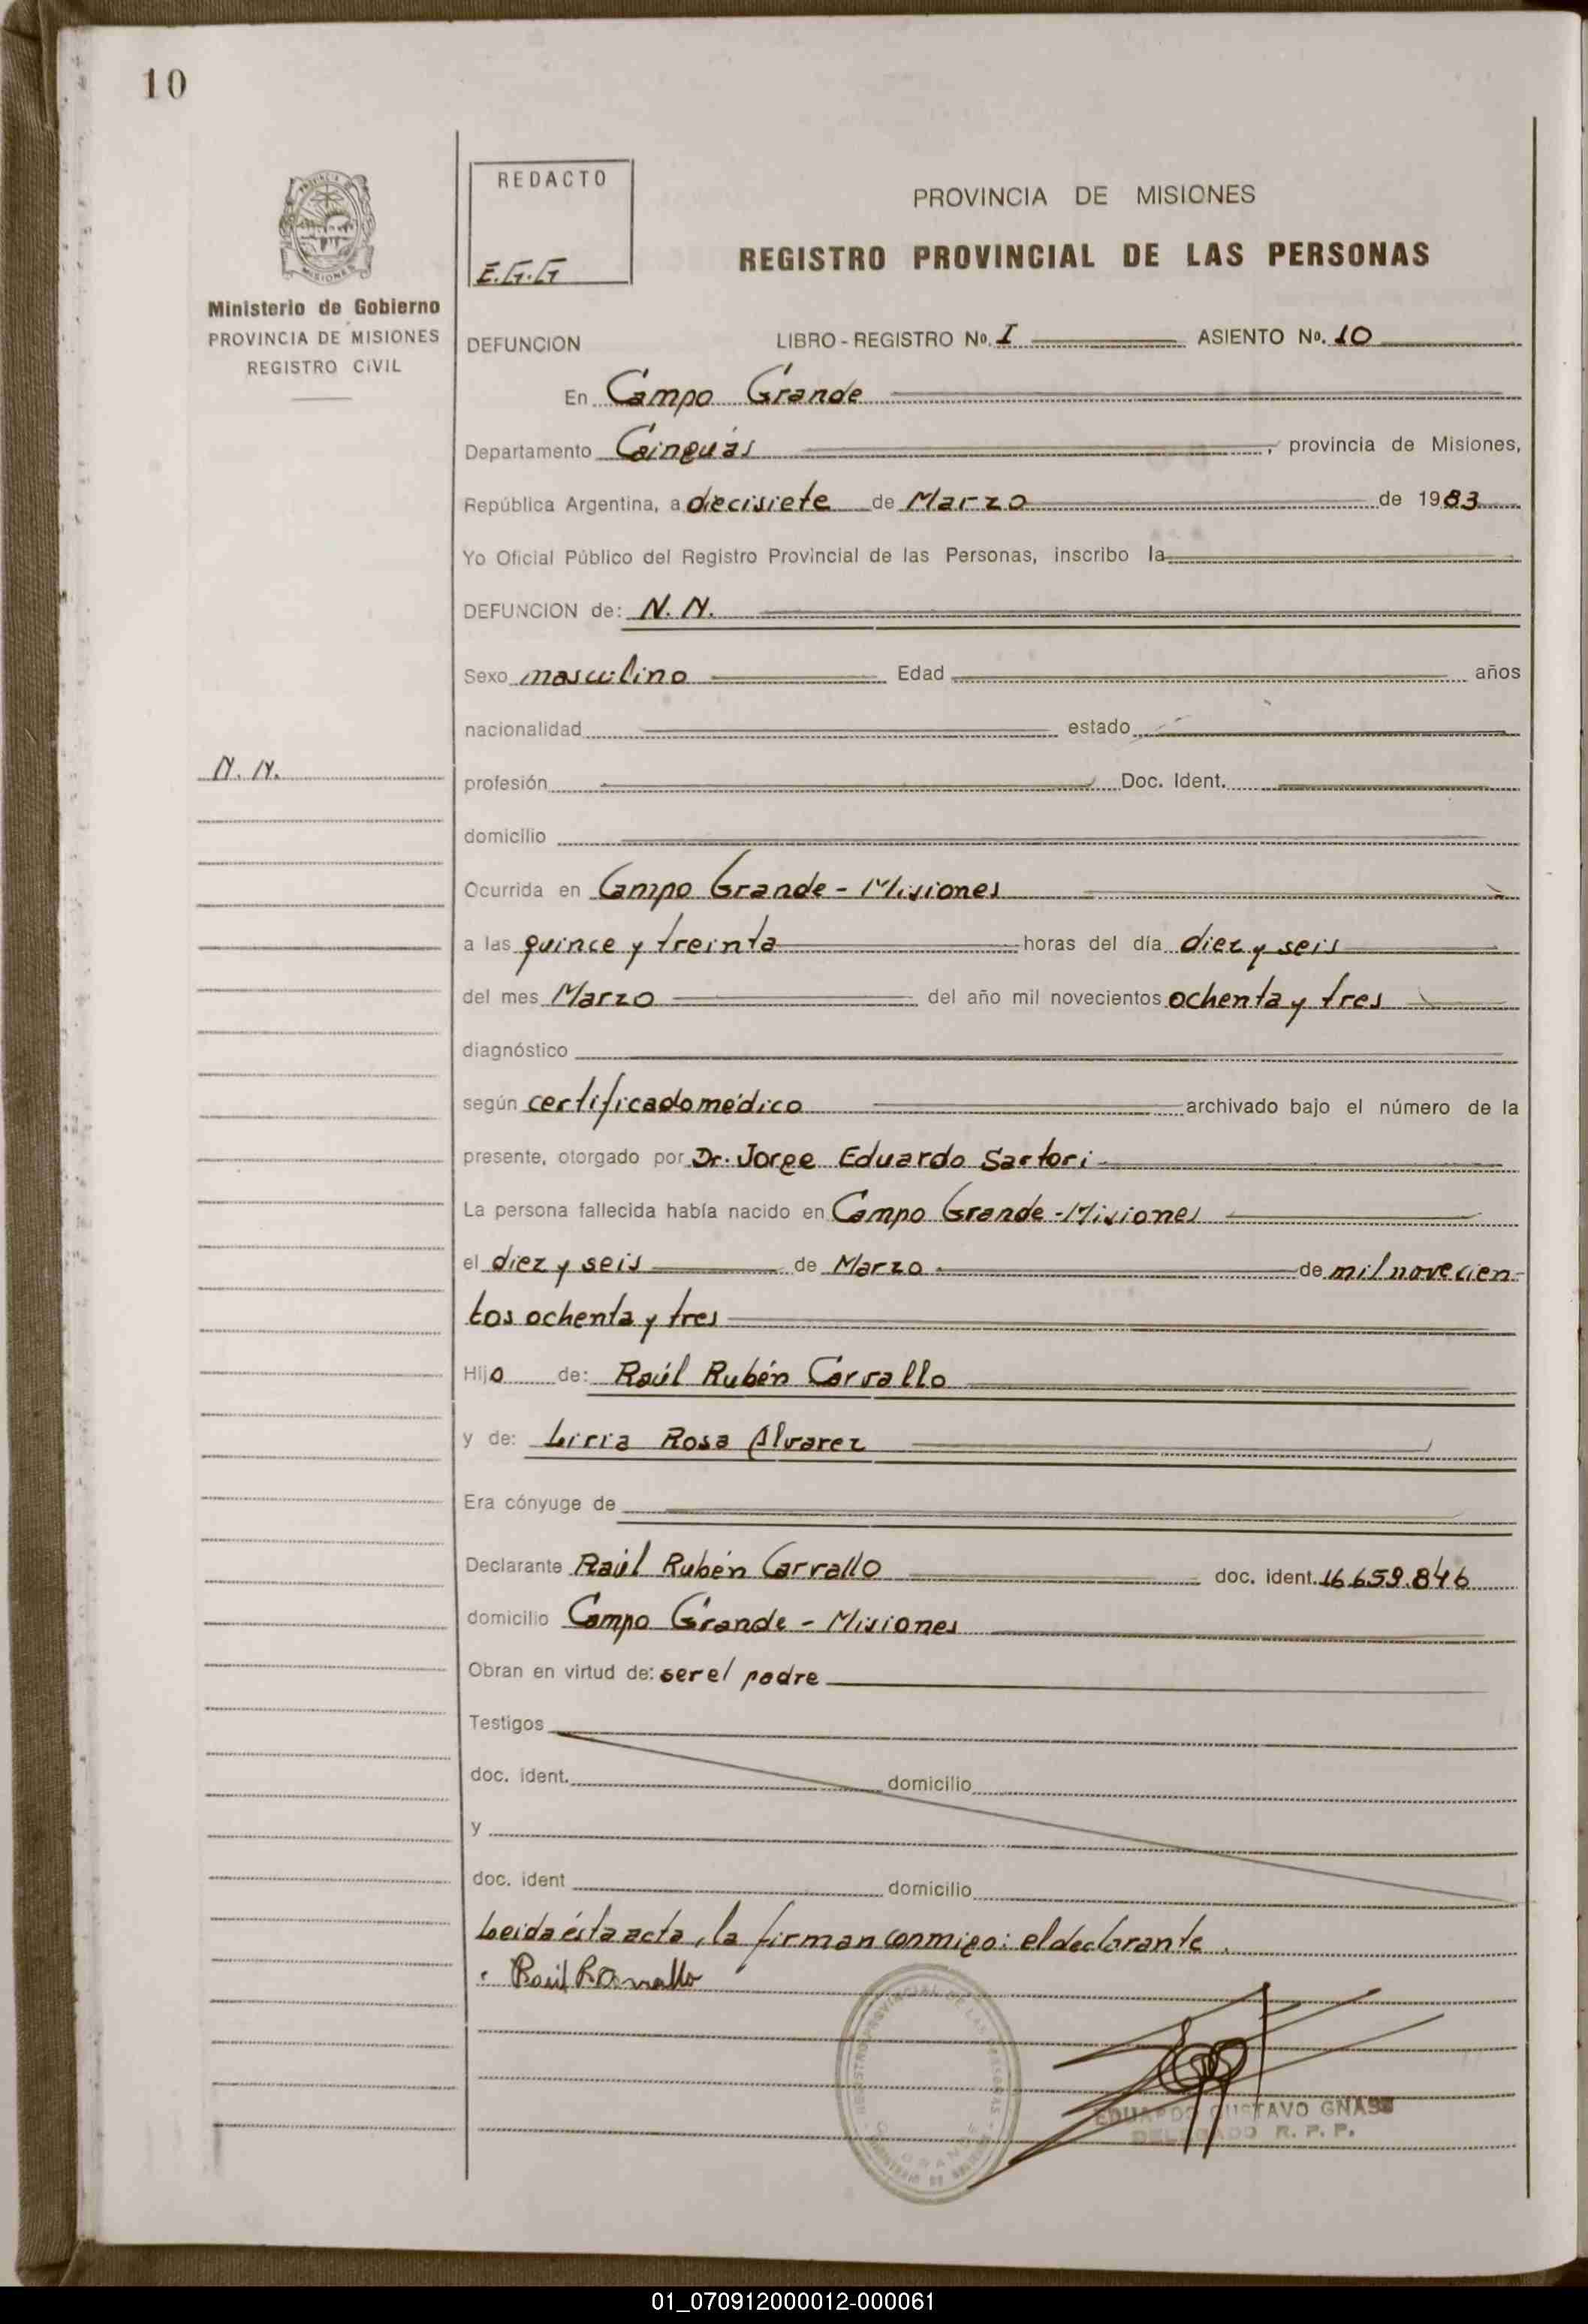 10
REDACTO
E.G.G
PROVINCIA DE MISIONES
REGISTRO PROVINCIAL DE LAS PERSONAS
Ministerio de Gobierno
PROVINCIA DE MISIONES
REGISTRO CIVIL
DEFUNCION LIBRO - REGISTRO Nº. I ASIENTO Nº. 10
En Campo Grande
Departamento Cainguás, provincia de Misiones,
República Argentina, a diecisiete de Marzo de 1983
Yo Oficial Público del Registro Provincial de las Personas, inscribo la
DEFUNCION de: N. N.
Sexo masculino Edad años
nacionalidad estado
N. N.
profesión Doc. Ident.
domicilio
Ocurrida en Campo Grande - Misiones
a las quince y treinta horas del día diez y seis
del mes Marzo del año mil novecientos ochenta y tres
diagnóstico
según certificado médico archivado bajo el número de la
presente, otorgado por Dr. Jorge Eduardo Sartori
La persona fallecida había nacido en Campo Grande - Misiones
el diez y seis de Marzo de mil novecien-
tos ochenta y tres
Hijo de: Raúl Rubén Carvallo
y de: Liria Rosa Alvarez
Era cónyuge de
Declarante Raúl Rubén Carvallo doc. ident. 16.659.846
domicilio Campo Grande - Misiones
Obran en virtud de: ser el padre
Testigos
doc. ident. domicilio
y
doc. ident domicilio
Leida ésta acta, la firman conmigo: el declarante.
Raúl R Carvallo
REGISTRO PROVINCIAL DE LAS PERSONAS
EDUARDO GUSTAVO GNASS
DELEGADO R. P. P.
01_070912000012-000061